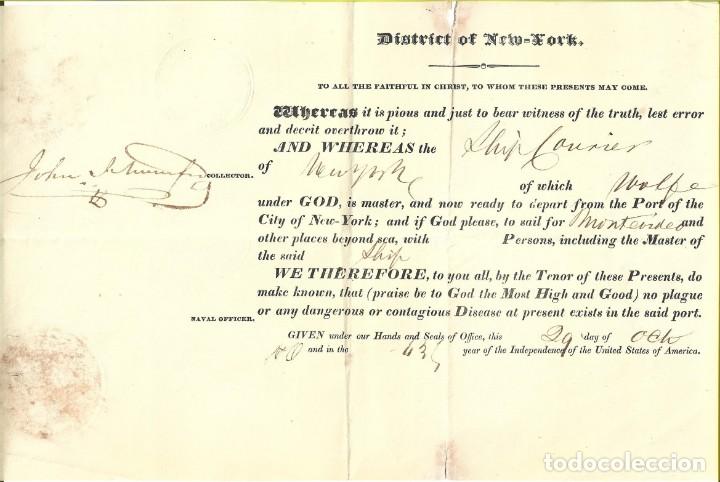 District of New-York.
TO ALL THE FAITHFUL IN CHRIST, TO WHOM THESE PRESENTS MAY COME.
Whereas it is pious and just to bear witness of the truth, lest error
and deceit overthrow it;
AND WHEREAS the Ship Courier
of New York
of which Wolfe
under GOD, is master, and now ready to depart from the Port of the
City of New-York; and if God please, to sail for Montevideo and
other places beyond sea, with Persons, including the Master of
the said Ship
WE THEREFORE, to you all, by the Tenor of these Presents, do
make known, that (praise be to God the Most High and Good) no plague
or any dangerous or contagious Disease at present exists in the said port.
GIVEN under our Hands and Seals of Office, this 29 day of Oct
and in the 63 year of the Independence of the United States of America.
John
COLLECTOR.
NAVAL OFFICER.
todocoleccion.net